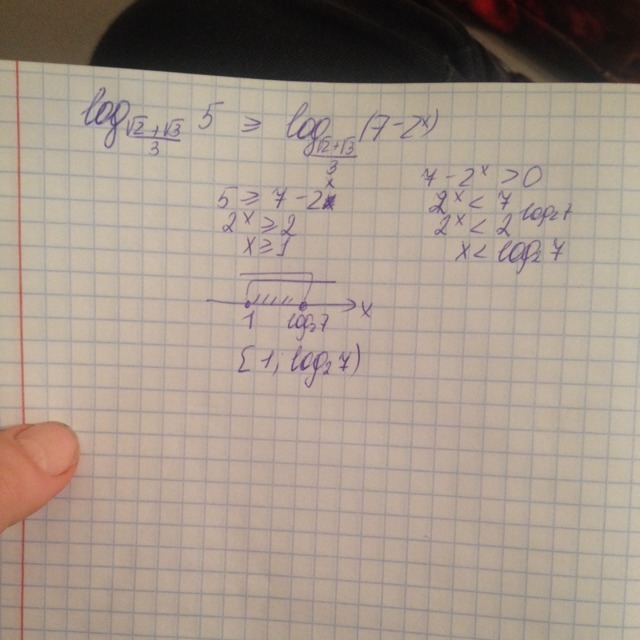 log_{(√2+√3)/3} 5 ≥ log_{(√2+√3)/3} (7-2^x)
5 ≥ 7 - 2^x
2^x ≥ 2
x ≥ 1
7 - 2^x > 0
2^x < 7
2^x < 2^{log₂7}
x < log₂7
1 log₂7 x
[1; log₂7)